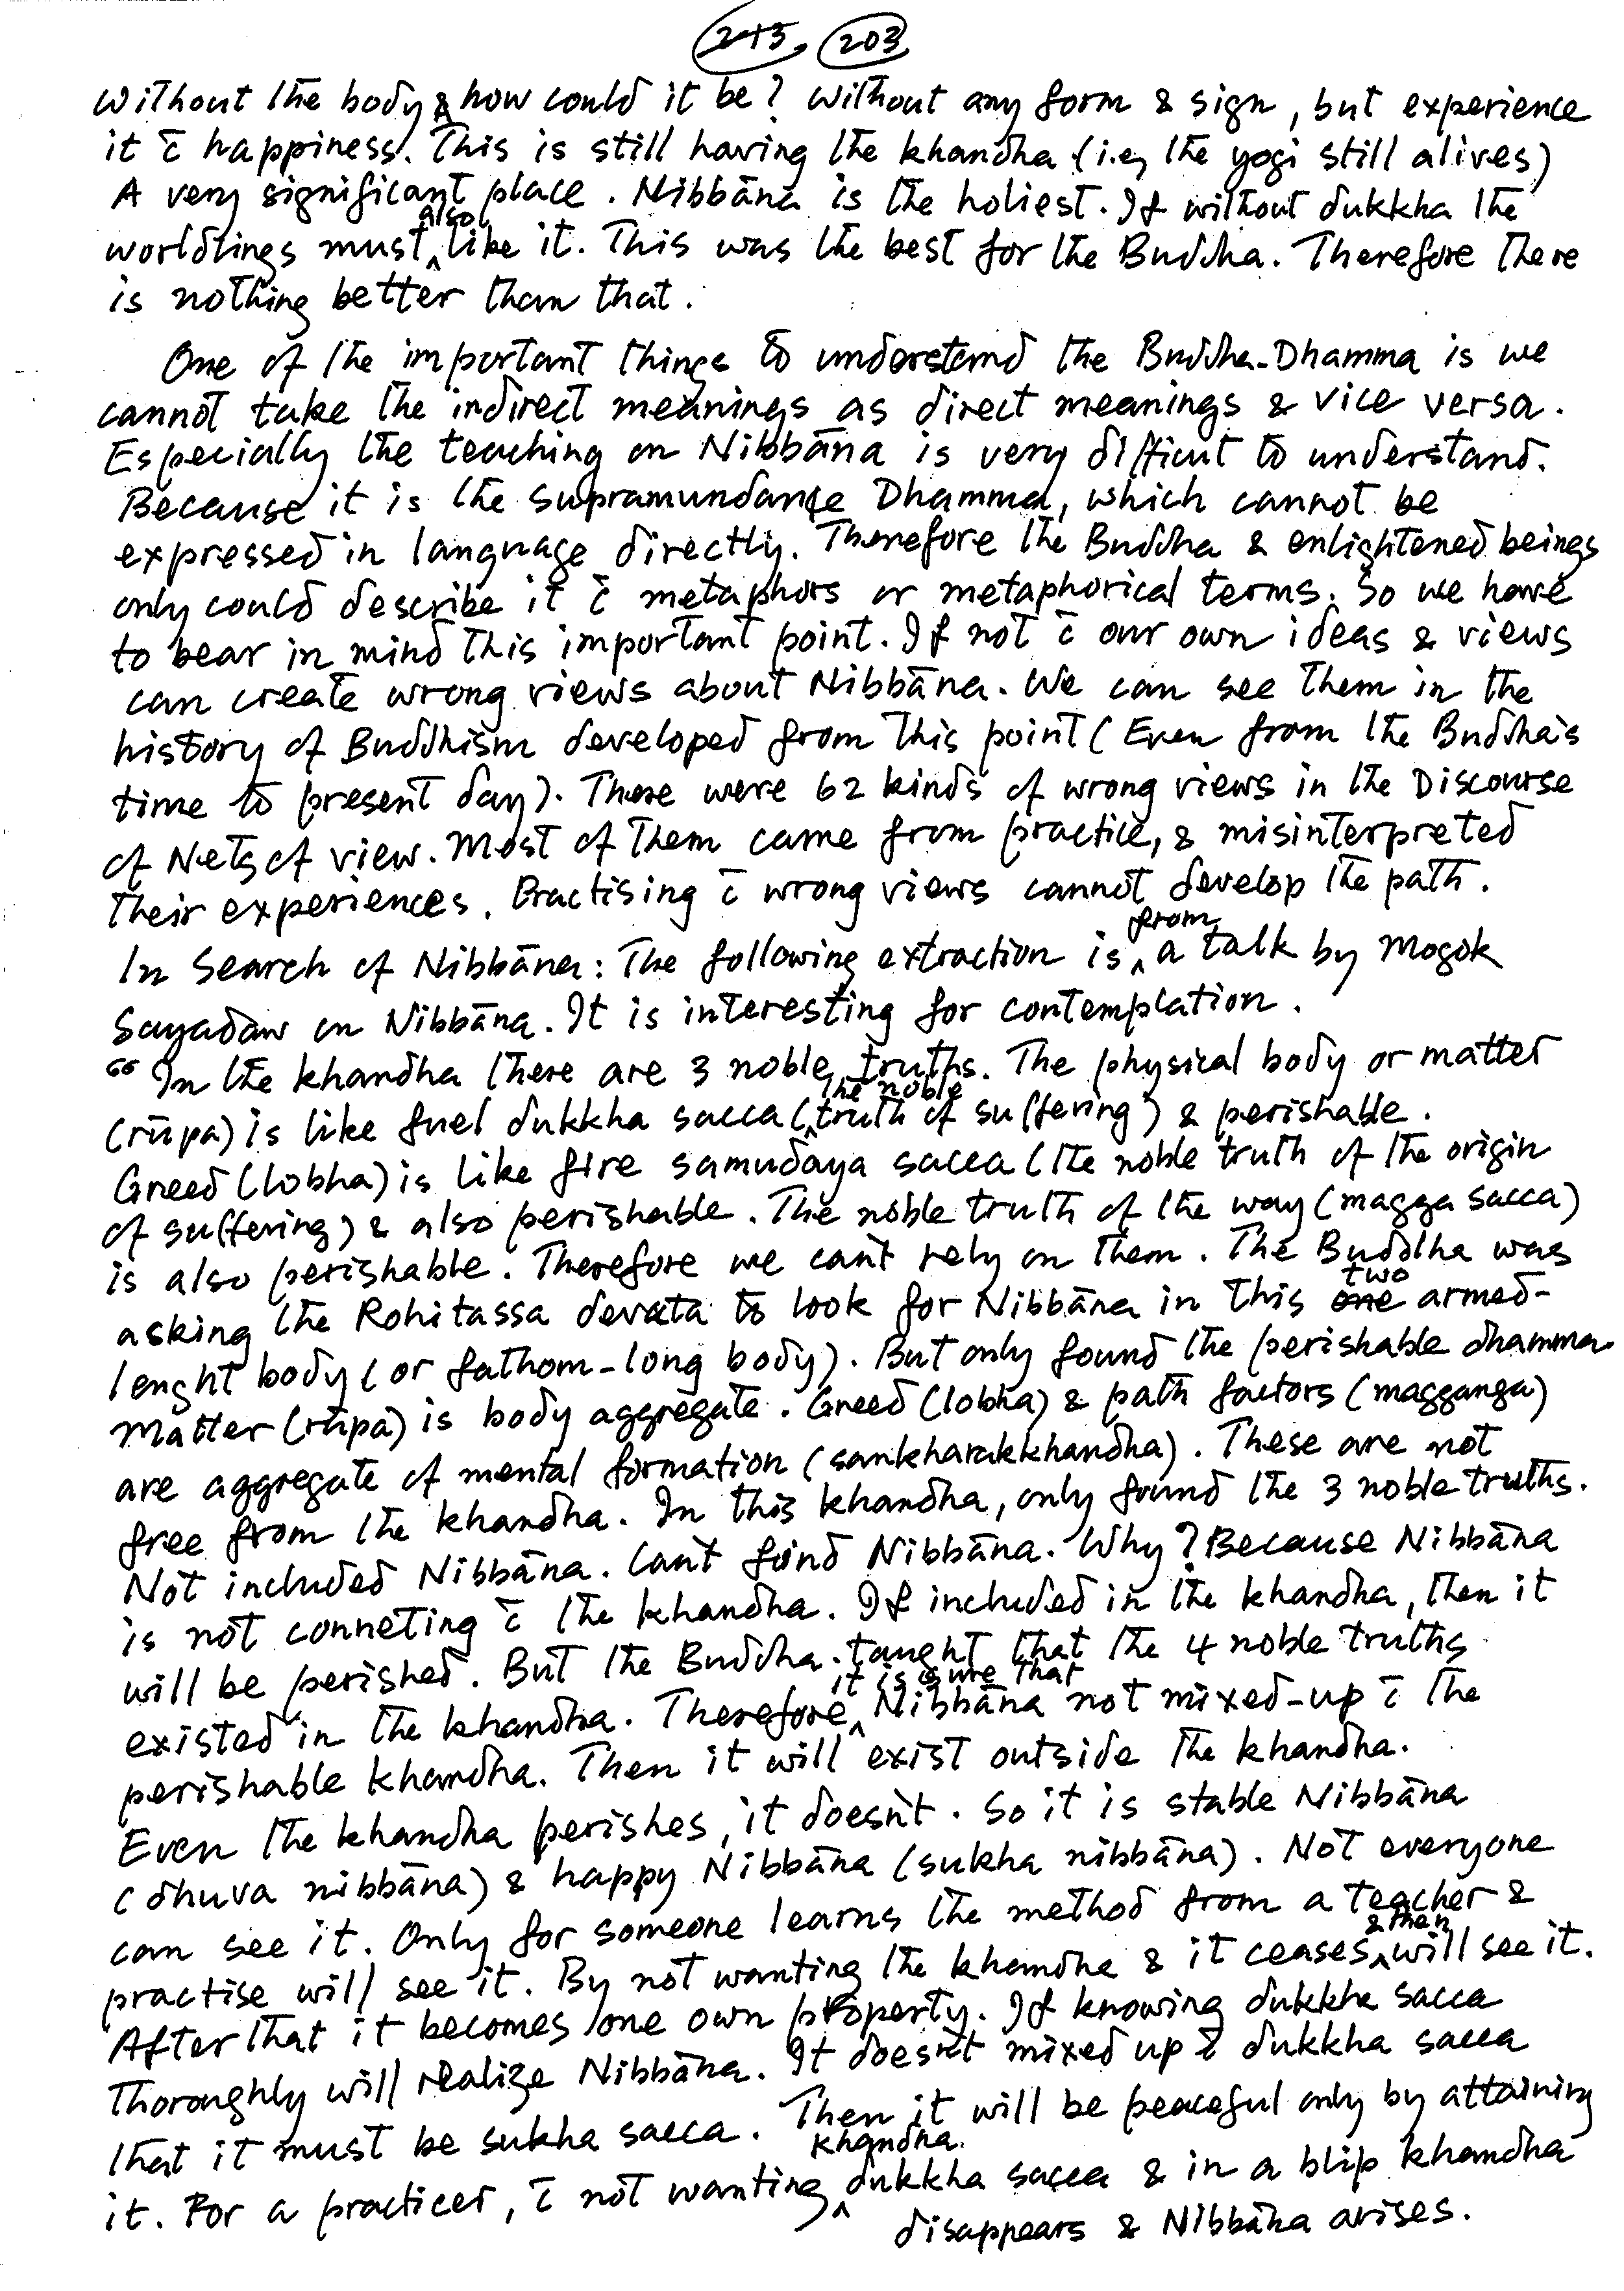 245, 203
Without the body & how could it be? Without any form & sign, but experience
it c̄ happiness. This is still having the khandha (i.e, the yogi still alives)
A very significant place. Nibbāna is the holiest. If without dukkha the
worldlings must also like it. This was the best for the Buddha. Therefore there
is nothing better than that.
One of the important things to understand the Buddha-Dhamma is we
cannot take the indirect meanings as direct meanings & vice versa.
Especially the teaching on Nibbāna is very difficut to understand.
Because it is the supramundane Dhamma, which cannot be
expressed in language directly. Therefore the Buddha & enlightened beings
only could describe it c̄ metaphors or metaphorical terms. So we have
to bear in mind this important point. If not c̄ our own ideas & views
can create wrong views about Nibbāna. We can see them in the
history of Buddhism developed from this point (Even from the Buddha's
time to present day). There were 62 kinds of wrong views in the Discourse
of Nets of view. Most of them came from practice, & misinterpreted
their experiences. Practising c̄ wrong views cannot develop the path.
In Search of Nibbāna: The following extraction is from a talk by Mogok
Sayadaw on Nibbāna. It is interesting for contemplation.
"In the khandha there are 3 noble truths. The physical body or matter
(rūpa) is like fuel dukkha sacca (the noble truth of suffering) & perishable.
Greed (lobha) is like fire samudaya sacca (the noble truth of the origin
of suffering) & also perishable. The noble truth of the way (magga sacca)
is also perishable. Therefore we can't rely on them. The Buddha was
asking the Rohitassa devata to look for Nibbāna in this one two armed-
lenght body (or fathom-long body). But only found the perishable dhamma.
Matter (rūpa) is body aggregate. Greed (lobha) & path factors (magganga)
are aggregate of mental formation (sankharakkhandha). These are not
free from the khandha. In this khandha, only found the 3 noble truths.
Not included Nibbāna. Can't find Nibbāna. Why? Because Nibbāna
is not conneting c̄ the khandha. If included in the khandha, then it
will be perished. But the Buddha taught that the 4 noble truths
existed in the khandha. Therefore it is sure that Nibbāna not mixed-up c̄ the
perishable khandha. Then it will exist outside the khandha.
Even the khandha perishes, it doesn't. So it is stable Nibbāna
(dhuva nibbāna) & happy Nibbāna (sukha nibbāna). Not everyone
can see it. Only for someone learns the method from a teacher &
practise will see it. By not wanting the khandha & it ceases & then will see it.
After that it becomes one own property. If knowing dukkha sacca
thoroughly will realize Nibbāna. It doesn't mixed up c̄ dukkha sacca
that it must be sukha sacca. Then it will be peaceful only by attaining
it. For a practicer, c̄ not wanting khandha dukkha sacca & in a blip khandha
disappears & Nibbāna arises.